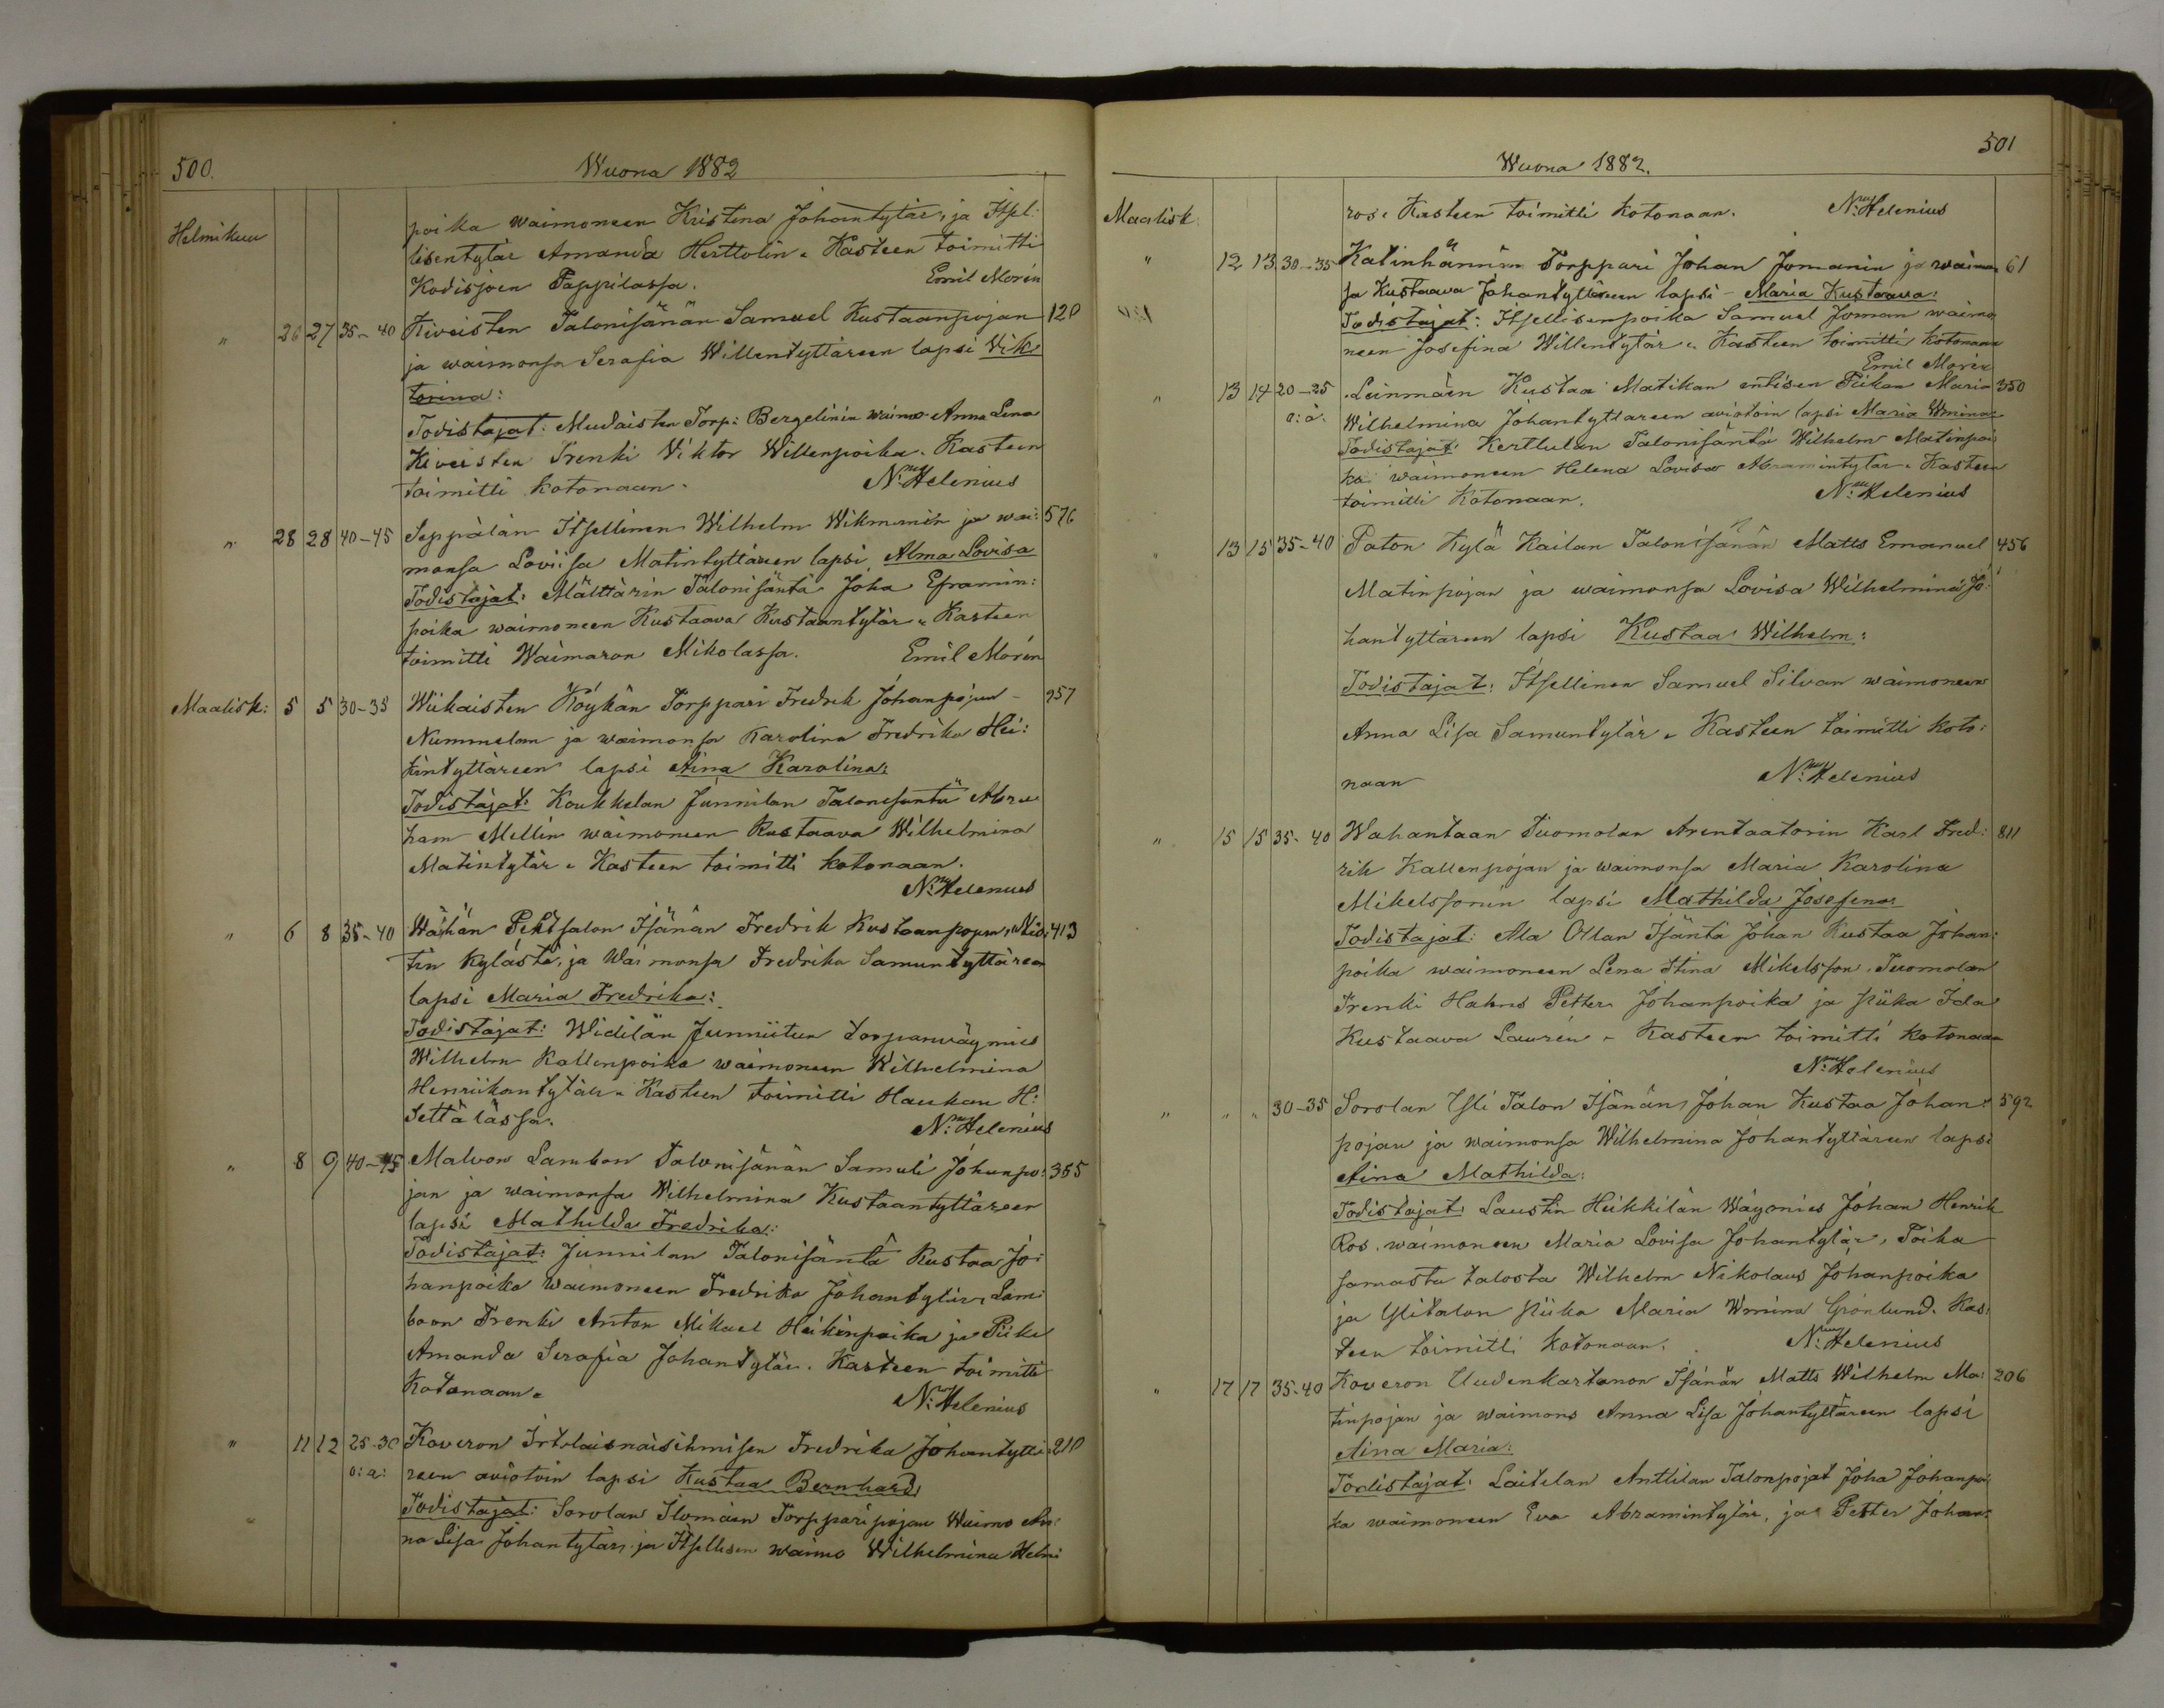 500.
Wuona 1882
Helmikuu
poika waimoneen Kristina Johantytär, ja Itsel:
lisentytär Amanda Herttolin. Kasteen toimitti
Kodisjoen Pappilassa. Emil Morén
" 26 27 35-40 Kiveisten Talonisänän Samuel Kustaanpojan 120
ja waimonsa Serafia Willentyttäreen lapsi Vik
torina:
Todistajat: Mudaisten Torp: Bergelinin waimo Anna Lena
Kiveisten Trenki Viktor Willenpoika. Kasteen
toimitti kotonaan. N. Helenius
" 28 28 40-45 Seppälän Itsellinen Wilhelm Wikmanin ja wai: 576
monsa Loviisa Matintyttären lapsi Alma Lovisa
Todistajat: Mälttärin Talonisäntä Joha Eframin:
poika waimoneen Kustaava Kustaantytär. Kasteen
toimitti Waimaron Mikolassa. Emil Morén
Maalisk: 5 5 30-35 Wiikaisten Köykän Torppari Fredrik Johanpojan 257
Nummelan ja waimonsa Karolina Fredrika Hei:
kintyttäreen lapsi Aina Karolina:
Todistajat: Koukkelan Junnilan Talonisäntä Abra
ham Mellin waimoneen Kustaava Wilhelmina
Matintytär. Kasteen toimitti kotonaan.
N. Helenius
" 6 8 35-40 Wähän Pehtsalon Isänän Fredrik Kustaanpojan, 413
tin Kylästä, ja Waimonsa Fredrika Samuntyttären
lapsi Maria Fredrika:
Todistajat: Widilän Junniitun torpanwäymies
Wilhelm Kallenpoika waimoneen Wilhelmina
Henriikantytär. Kasteen toimitti Haukan H:
Settälässä. N. Helenius
" 8 9 40-45 Malvon Lambon Talonisänän Samuli Johanpo: 355
jan ja waimonsa Wilhelmina Kustaantyttäreen
lapsi Mathilda Fredrika:
Todistajat: Junnilan Talonisäntä Kustaa Jo:
hanpoika waimoneen Fredrika Johantytär, Lam:
boon Trenki Anton Mikael Heikinpoika ja Piika
Amanda Serafia Johantytär. Kasteen toimitti
Kotonaan. N. Helenius
" 11 12 25-30 Koveron Irtolaisnaisihmisen Fredrika Johantyttä: 210
o: a: reen aviotoin lapsi Kustaa Bernhard
Todistajat: Sorolan Ilomäen Torpparipojan Waimo An:
na Lisa Johantytär, ja Itsellisen waimo Wilhelmina Helmi
501
Wuona 1882.
Maalisk: roos. Kasteen toimitti kotonaan. N. Helenius
" 12 13 30-35 Katinhännän Torppari Johan Jomanin ja waimon 61
sa Kustaava Johantyttäreen lapsi Maria Kustaava:
Todistajat: Itsellisenpoika Samuel Joman waimo
neen Josefina Willentytär. Kasteen toimitti kotonaan
Emil Morén
" 13 14 20-25 Leinmäen Kustaa Matikan entisen Piikan Maria 350
o: a: Wilhelmina Johantyttareen aviotoin lapsi Maria Wmina:
Todistajat: Kerttulan Talonisäntä Wilhelm Matinpoi
ka waimoneen Helena Lovisa Abramintytär. Kasteen
toimitti Kotonaan. N. Helenius
" 13 15 35-40 Paton Kylä Kailan Talonisänän Matts Emanuel 456
Matinpojan ja waimonsa Lovisa Wilhelmina Jo:
hantyttäreen lapsi Kustaa Wilhelm:
Todistajat: Itsellinen Samuel Silvan waimoneen
Anna Lisa Samuntytär. Kasteen toimitti koto:
naan N. Helenius
" 15 15 35-40 Wahantaan Tuomolan Arentaatorin Karl Fred: 811
rik Kallenpojan ja waimonsa Maria Karolina
Mikelssonin lapsi Mathilda Josefina:
Todistajat: Ala Ollan Isäntä Johan Kustaa Johan:
poika waimoneen Lena Stina Mikelsson, Tuomolan
Trenki Hahns Petter Johanpoika ja piika Ida
Kustaava Laurén. Kasteen toimitti kotonaan
N. Helenius
" " " 30-35 Sorolan Yli Talon Isänän Johan Kustaa Johan: 592
pojan ja waimonsa Wilhelmina Johantyttäreen lapsi
Aina Mathilda:
Todistajat: Laustin Heikkilän Wäymies Johan Henrik
Ros. waimoneen Maria Lovisa Johantytär, Poika
samasta talosta Wilhelm Nikolaus Johanpoika
ja Ylitalon piika Maria Wmina Grönlund. Kas:
teen toimitti kotonaan. N. Helenius
" 17 17 35-40 Koveron Uudenkartanon Isänän Matts Wilhelm Ma: 206
tinpojan ja waimons Anna Lisa Johantyttäreen lapsi
Aina Maria:
Todistajat: Laitilan Anttilan Talonpojat Joha Johanpoi
ka waimoneen Eva Abramintytär, ja Petter Johan: